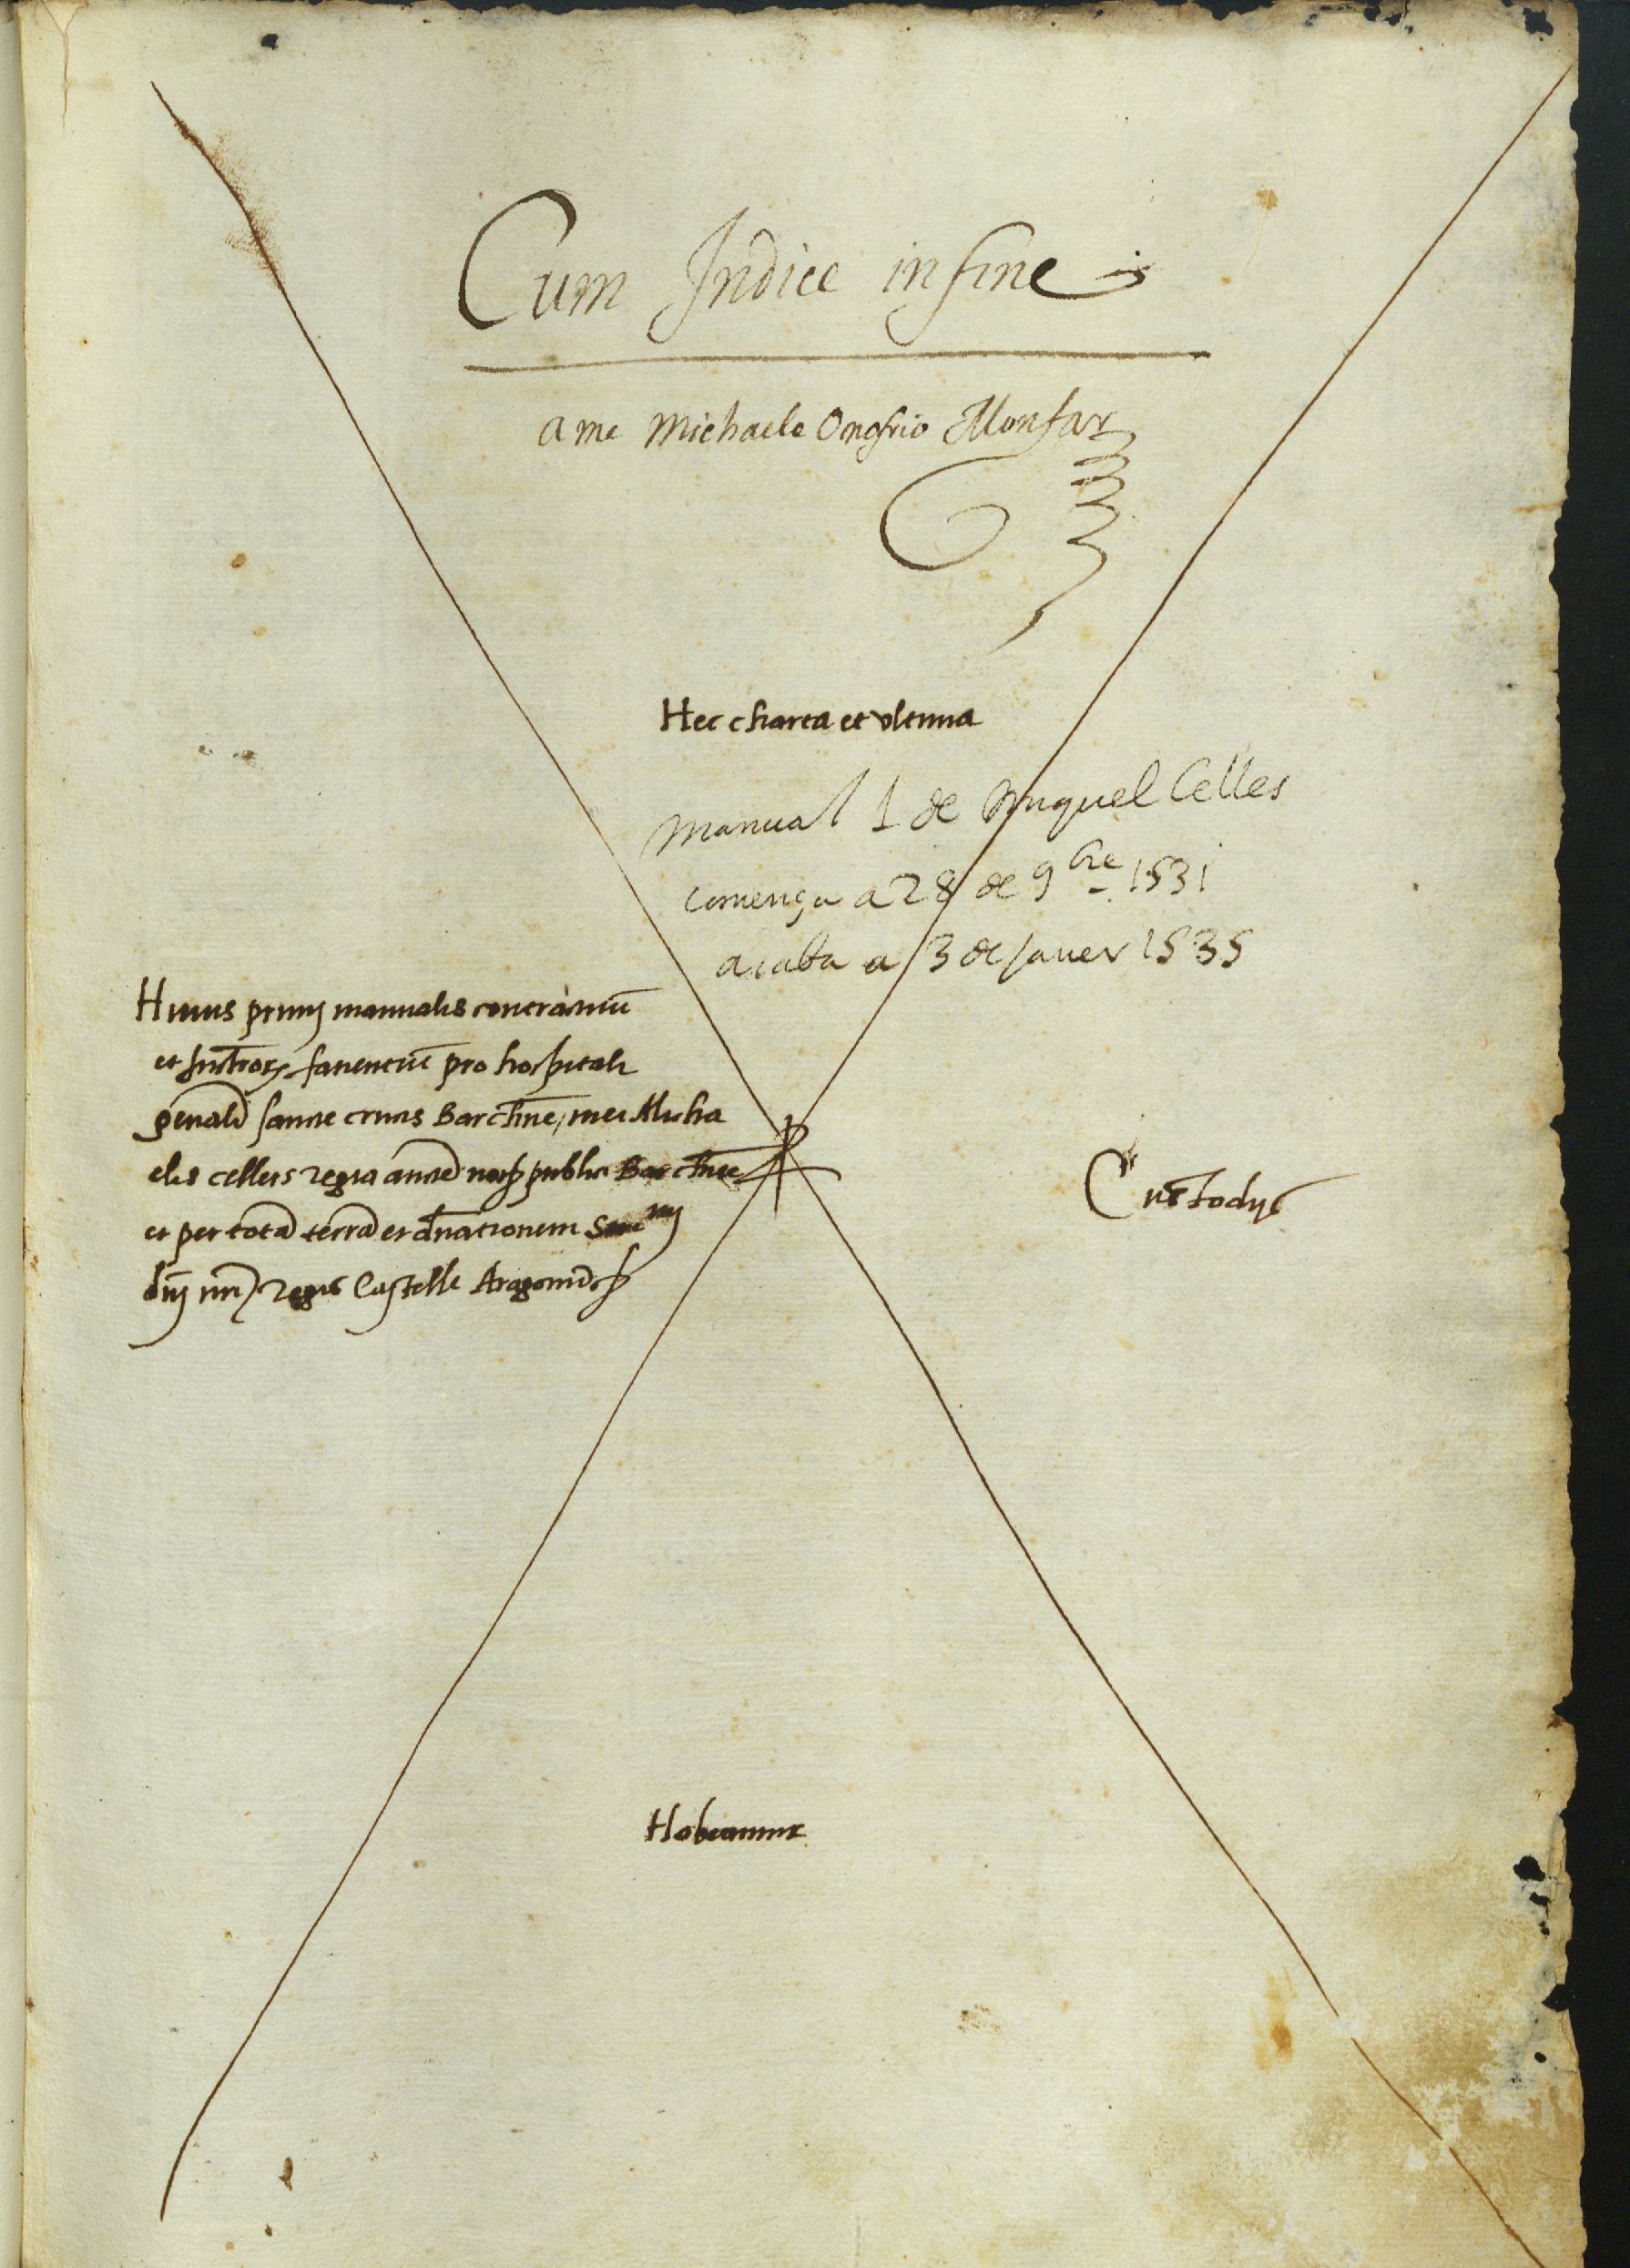 Cum Indice in fine
a me Michaele Onofrio Monfar
Hec charta et vltima
Manual 1 de Miquel Celles
comença a 28 de 9bre 1531
acaba a 3 de Janer 1535
Huius primi manualis contractuū
et Instror facientiū pro hospitali
generali sancte crucis Barchne, mei Micha
elis celles regia aucte noty publici Barchne
et per totā terrā et dnationem
dnj nrj regis Castelle Aragonū
Custodijs
Habeantur